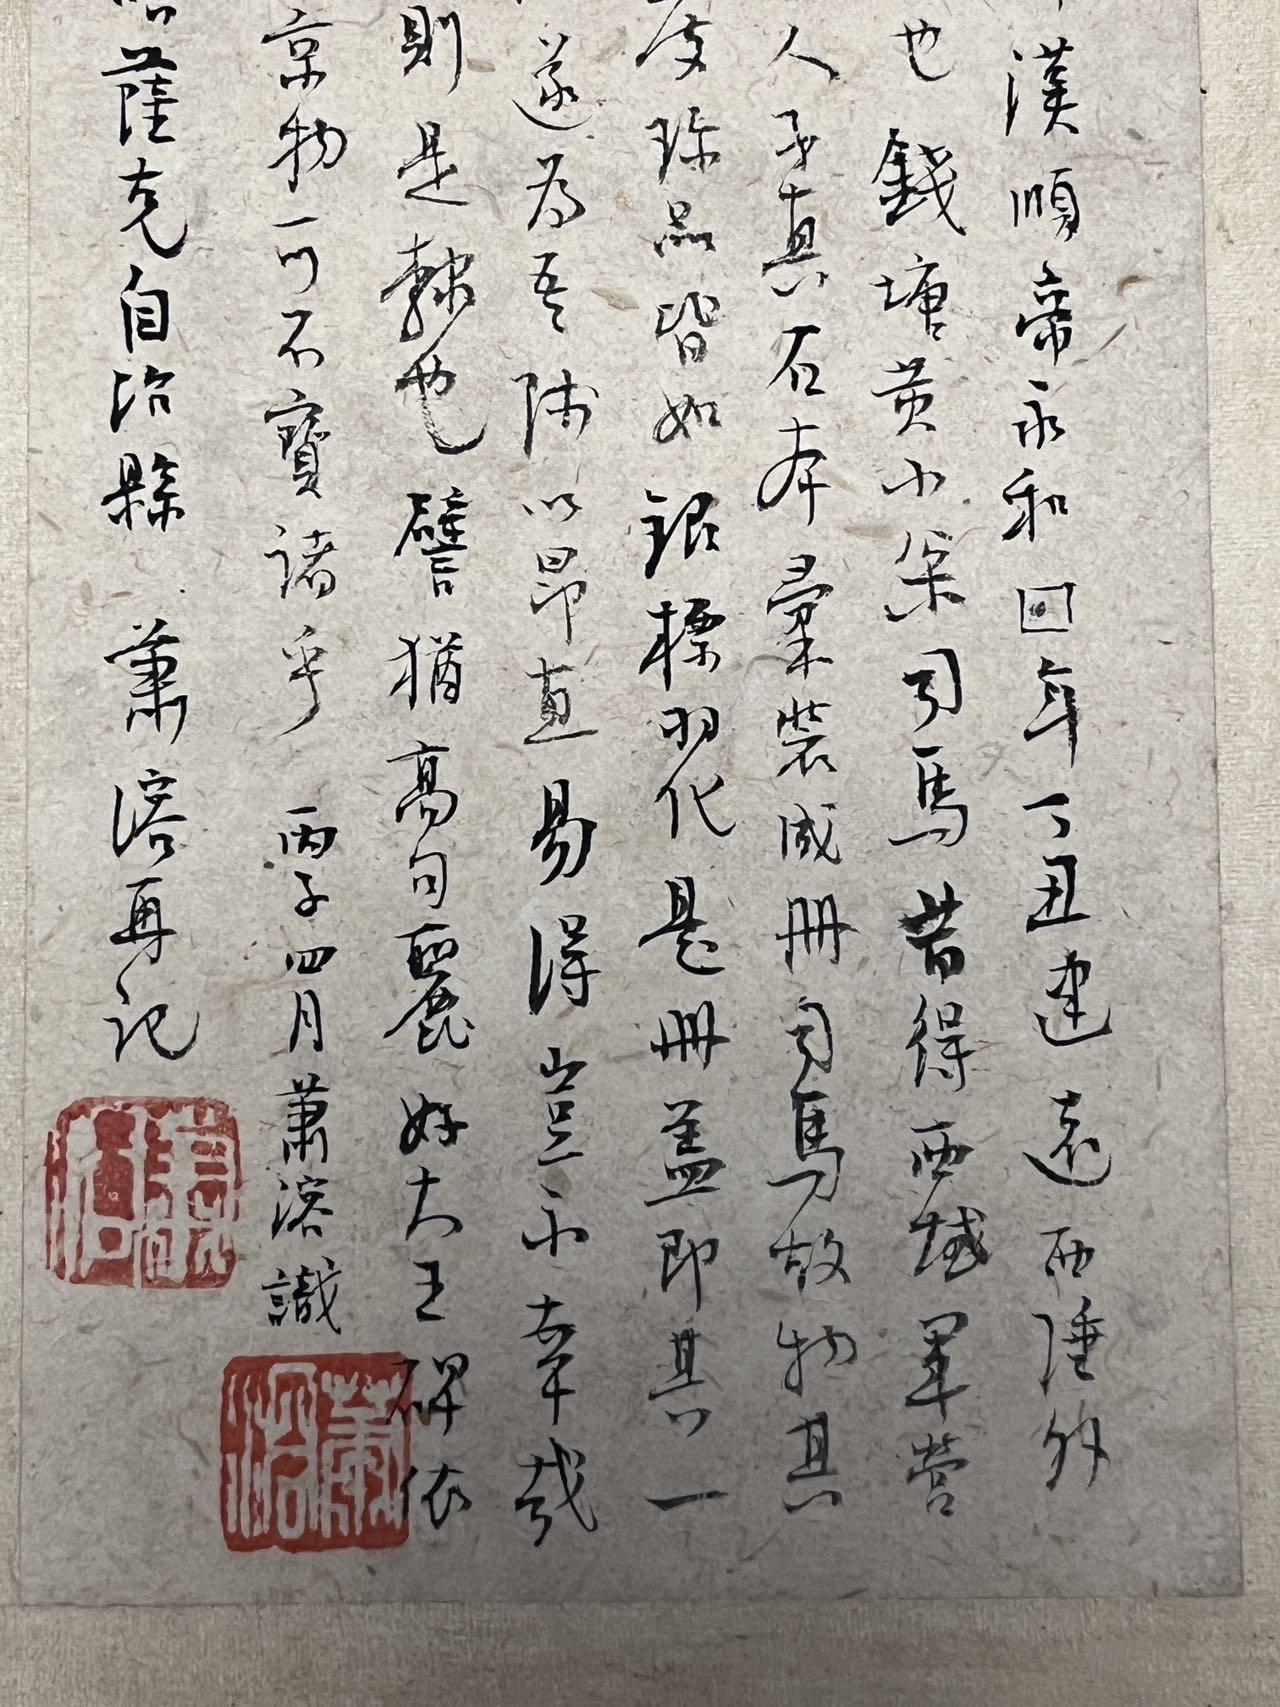 漢順帝永和四年丁丑建遠西陲外
也錢塘黃小松司馬昔得西域軍營
人手真石本彙裝成冊司馬故物其
皮珍品皆如銀標羽化是冊蓋即其一
遂為吾陏以昂直易得豈不幸哉
則是隸也譬猶高句麗好大王碑依
京物可不寶諸乎 丙子四月蕭溶識
薩克自治縣 蕭溶再記
蕭溶